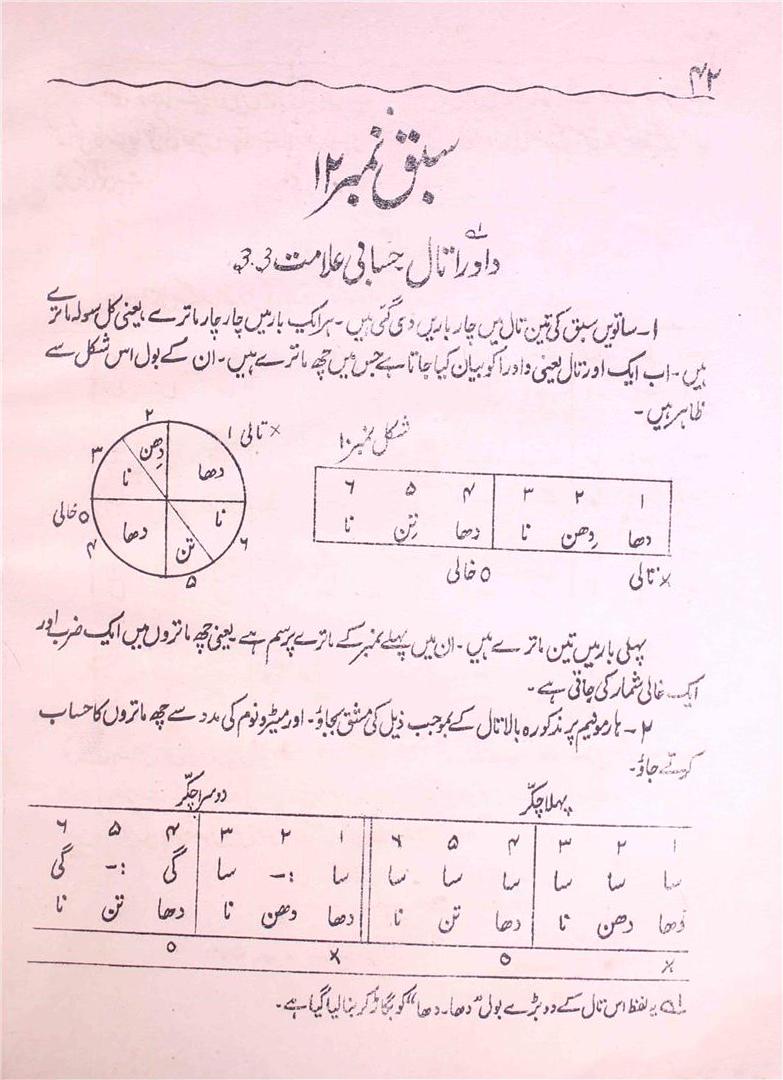 ۴۲
سبق نمبر ۱۲
دادرا تال حسابی علامت 3.3
۱۔ ساتویں سبق کی تین تال میں چار باریں دی گئی ہیں۔ ہر ایک بار میں چار چار ماترے یعنی کل سولہ ماترے
ہیں۔ اب ایک اور تال یعنی دادرا کو بیان کیا جاتا ہے جس میں چھ ماترے ہیں۔ ان کے بول اس شکل سے
ظاہر ہیں۔
شکل نمبر ۱۰
۱ ۲ ۳ ۴ ۵ ۶
دھا دِھن نا دھا تِن نا
× تالی ۰ خالی
× تالی ۱ ۲ ۳
دھا دِھن نا
۰ خالی ۴ ۵ ۶
دھا تن نا
پہلی بار میں تین ماترے ہیں۔ ان میں پہلے نمبر کے ماترے پر سم ہے یعنی چھ ماتروں میں ایک ضرب اور
ایک خالی شمار کی جاتی ہے۔
۲۔ ہارمونیم پر مذکورہ بالا تال کے بموجب ذیل کی مشق بجاؤ۔ اور میٹرونوم کی مدد سے چھ ماتروں کا حساب
کرتے جاؤ۔
پہلا چکّر دوسرا چکّر
۱ ۲ ۳ ۴ ۵ ۶ ۱ ۲ ۳ ۴ ۵ ۶
سا سا سا سا سا سا سا :- سا گی :- گی
دھا دھن نا دھا تن نا دھا دھن نا دھا تن نا
× ۰ × ۰
لہ یہ لفظ اس تال کے دو بڑے بولی "دھا۔ دھا" کو بگاڑ کر بنا لیا گیا ہے۔